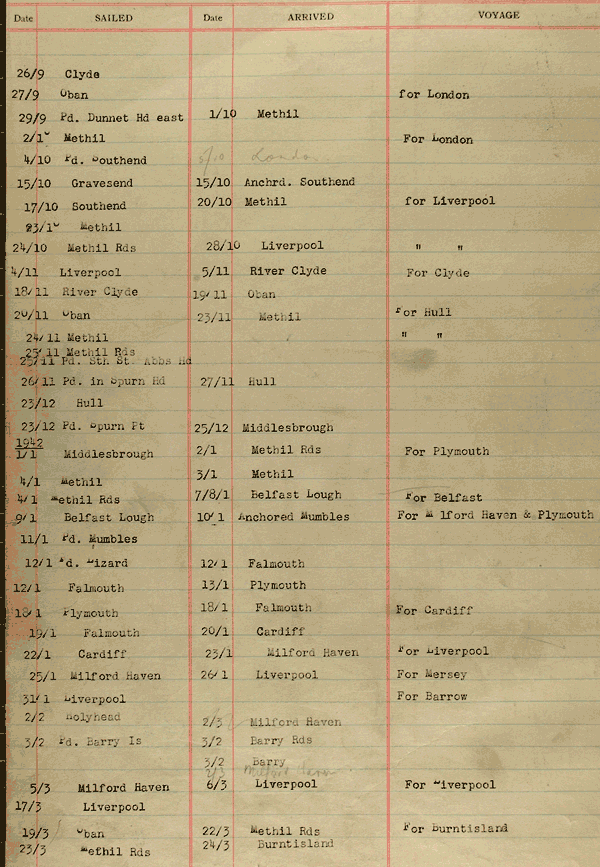 Date SAILED Date ARRIVED VOYAGE
26/9 Clyde
27/9 Oban for London
29/9 Pd. Dunnet Hd east 1/10 Methil
2/10 Methil For London
4/10 Pd. Southend 5/10 London
15/10 Gravesend 15/10 Anchrd. Southend
17/10 Southend 20/10 Methil for Liverpool
23/10 Methil
24/10 Methil Rds 28/10 Liverpool " "
4/11 Liverpool 5/11 River Clyde For Clyde
18/11 River Clyde 19/11 Oban
20/11 Oban 23/11 Methil For Hull
24/11 Methil " "
25/11 Methil Rds
25/11 Pd. Sth St. Abbs Hd
26/11 Pd. in Spurn Hd 27/11 Hull
23/12 Hull
23/12 Pd. Spurn Pt 25/12 Middlesbrough
1942
1/1 Middlesbrough 2/1 Methil Rds For Plymouth
4/1 Methil 3/1 Methil
4/1 Methil Rds 7/8/1 Belfast Lough For Belfast
9/1 Belfast Lough 10/1 Anchored Mumbles For Milford Haven & Plymouth
11/1 Pd. Mumbles
12/1 Pd. Lizard 12/1 Falmouth
12/1 Falmouth 13/1 Plymouth
18/1 Plymouth 18/1 Falmouth For Cardiff
19/1 Falmouth 20/1 Cardiff
22/1 Cardiff 23/1 Milford Haven For Liverpool
25/1 Milford Haven 26/1 Liverpool For Mersey
31/1 Liverpool For Barrow
2/2 Holyhead 2/3 Milford Haven
3/2 Pd. Barry Is 3/2 Barry Rds
3/2 Barry
2/3 Milford Haven
5/3 Milford Haven 6/3 Liverpool For Liverpool
17/3 Liverpool
19/3 Oban 22/3 Methil Rds For Burntisland
23/3 Methil Rds 24/3 Burntisland